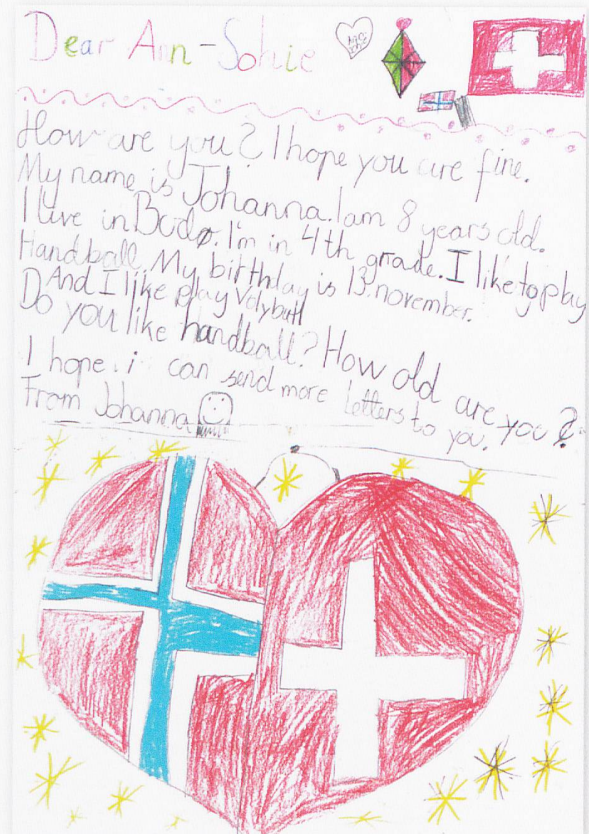 Dear Ann-Sohie
How are you? I hope you are fine.
My name is Johanna. I am 8 years old.
I live in Bodø. I'm in 4th grade. I like to play
Handball. My birthday is 13. november.
And I like play Volyball
Do you like handball? How old are you?
I hope. i can send more letters to you.
From Johanna